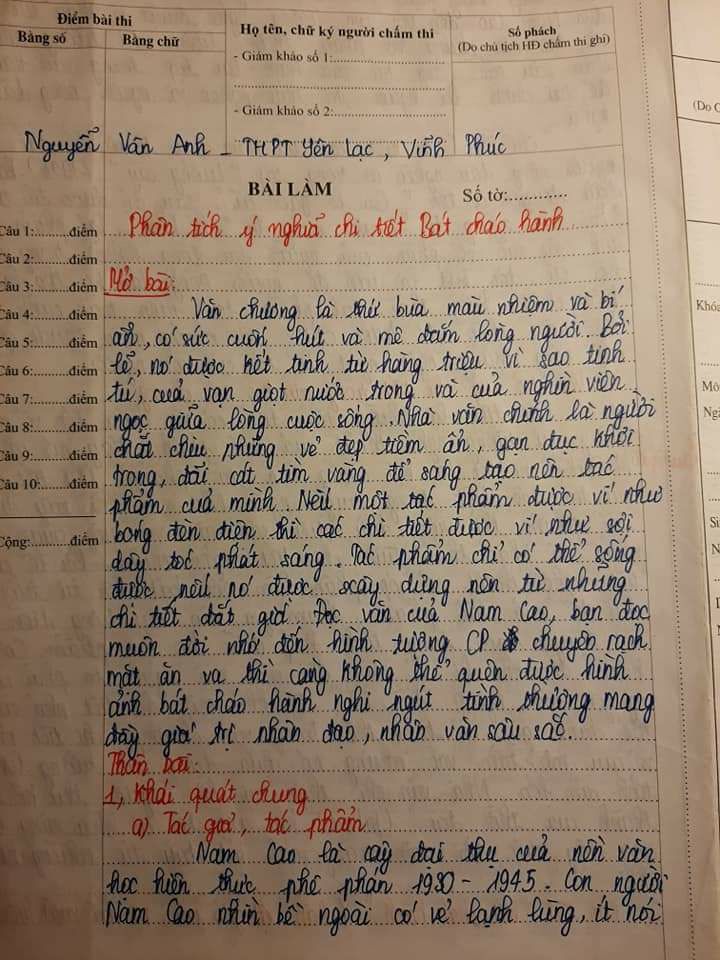 Điểm bài thi
Bằng số
Bằng chữ
Họ tên, chữ ký người chấm thi
- Giám khảo số 1:
- Giám khảo số 2:
Số phách
(Do chủ tịch HĐ chấm thi ghi)
(Do C
Nguyễn Vân Anh - THPT Yên Lạc, Vĩnh Phúc
BÀI LÀM
Số tờ:
Câu 1:.........điểm
Câu 2:.........điểm
Câu 3:.........điểm
Câu 4:.........điểm
Câu 5:.........điểm
Câu 6:.........điểm
Câu 7:.........điểm
Câu 8:.........điểm
Câu 9:.........điểm
Câu 10:........điểm
Cộng:..........điểm
Phân tích ý nghĩa chi tiết Bát cháo hành
Mở bài:
Văn chương là thứ bùa màu nhiệm và bí
ẩn, có sức cuốn hút và mê đắm lòng người. Bởi
lẽ, nó được kết tinh từ hàng triệu vì sao tinh
tú, của vạn giọt nước trong và của nghìn viên
ngọc giữa lòng cuộc sống. Nhà văn chính là người
chắt chiu những vẻ đẹp tiềm ẩn, gạn đục khơi
trong, đãi cát tìm vàng để sáng tạo nên tác
phẩm của mình. Nếu một tác phẩm được ví như
bóng đèn điện thì các chi tiết được ví như sợi
dây tóc phát sáng. Tác phẩm chỉ có thể sống
được nếu nó được xây dựng nên từ những
chi tiết đắt giá. Đọc văn của Nam Cao, bạn đọc
muôn đời nhớ đến hình tượng CP chuyên rạch
mặt ăn vạ thì càng không thể quên được hình
ảnh bát cháo hành nghi ngút tình thương mang
đầy giá trị nhân đạo, nhân văn sâu sắc.
Thân bài:
1, Khái quát chung
a) Tác giả, tác phẩm
Nam Cao là cây đại thụ của nền văn
học hiện thực phê phán 1930 - 1945. Con người
Nam Cao nhìn bề ngoài có vẻ lạnh lùng, ít nói
Khóa